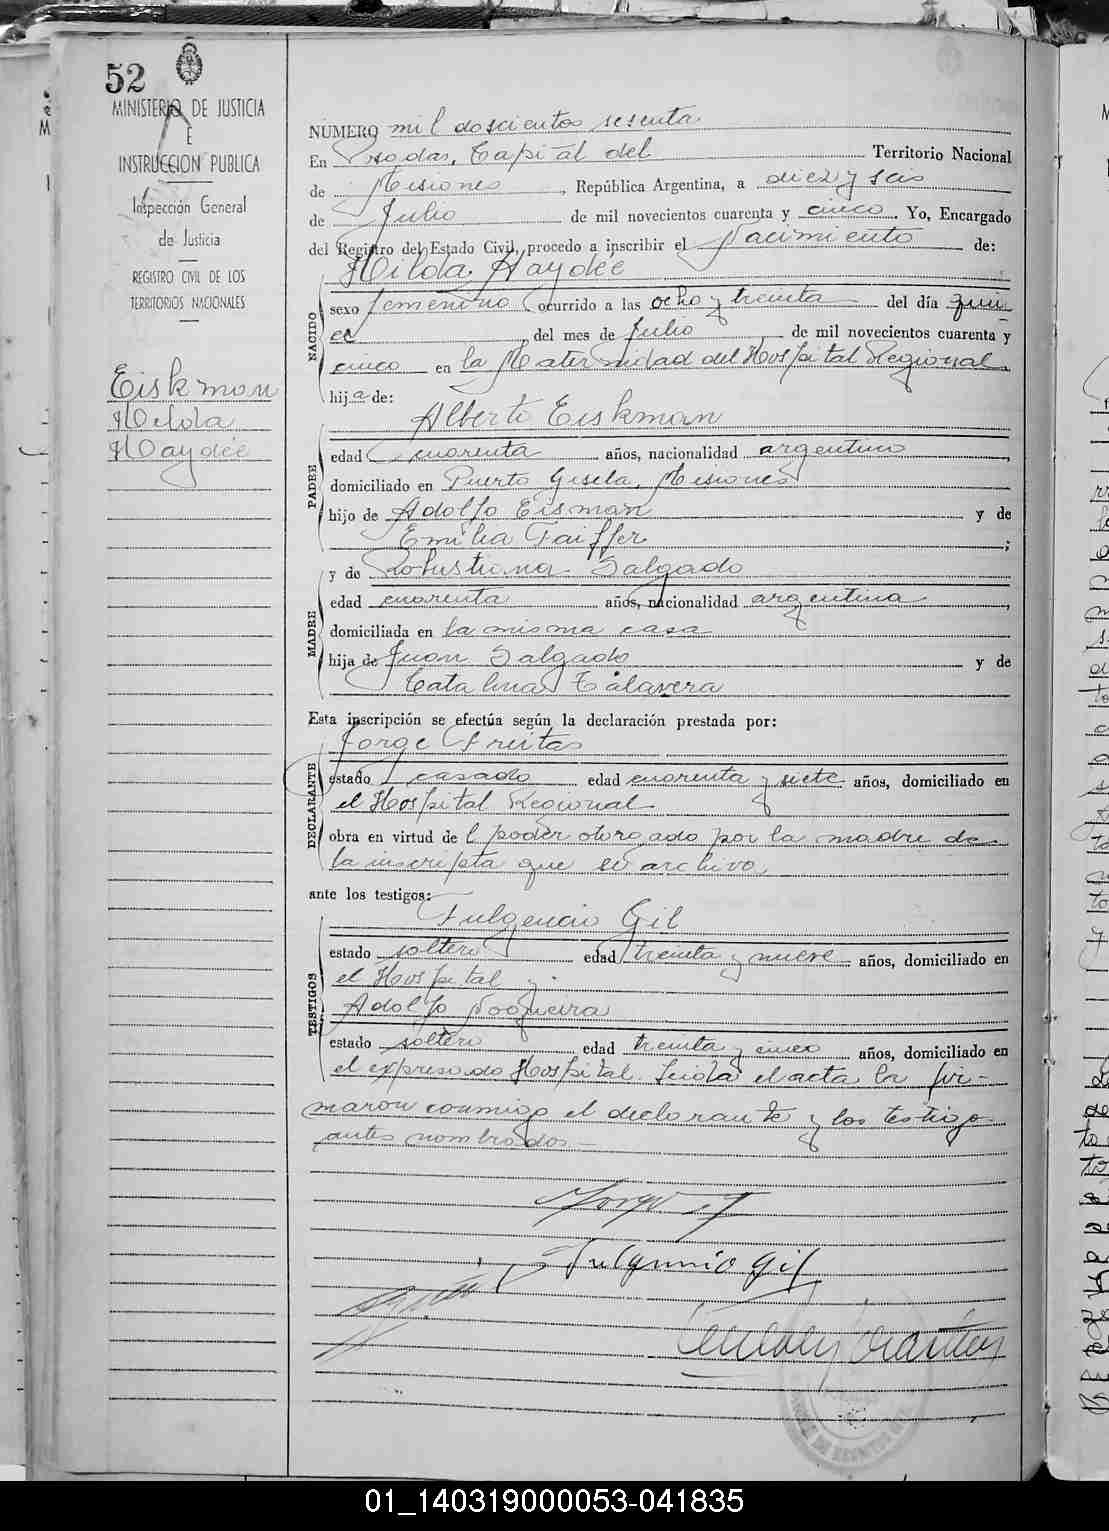 52
MINISTERIO DE JUSTICIA
E
INSTRUCCION PUBLICA
Inspección General
de Justicia
REGISTRO CIVIL DE LOS
TERRITORIOS NACIONALES
Eiskman
Hilda
Haydée
NÚMERO mil doscientos sesenta
En Posadas, Capital del Territorio Nacional
de Misiones, República Argentina, a diez y seis
de Julio de mil novecientos cuarenta y cinco. Yo, Encargado
del Registro del Estado Civil, procedo a inscribir el Nacimiento de:
NACIDO
Hilda Haydée
sexo femenino ocurrido a las ocho y treinta del día quin-
ce, del mes de Julio de mil novecientos cuarenta y
cinco en la Maternidad del Hospital Regional
hija de:
PADRE
Alberto Eiskman
edad cuarenta años, nacionalidad argentino,
domiciliado en Puerto Gisela, Misiones
hijo de Adolfo Eisman y de
Emilia Faiffer;
MADRE
y de Robustiana Salgado
edad cuarenta años, nacionalidad argentina,
domiciliada en la misma casa
hija de Juan Salgado y de
Catalina Talavera
Esta inscripción se efectúa según la declaración prestada por:
DECLARANTE
Jorge Freitas
estado casado edad cuarenta y siete años, domiciliado en
el Hospital Regional
obra en virtud del poder otorgado por la madre de
la inscripta que se archiva
ante los testigos:
TESTIGOS
Fulgencio Gil
estado soltero edad treinta y nueve años, domiciliado en
el Hospital y
Adolfo Nogueira
estado soltero edad treinta y cinco años, domiciliado en
el expresado Hospital. Leída el acta la fir-
maron conmigo el declarante y los testigo
antes nombrados.—
Fulgencio Gil
01_140319000053-041835